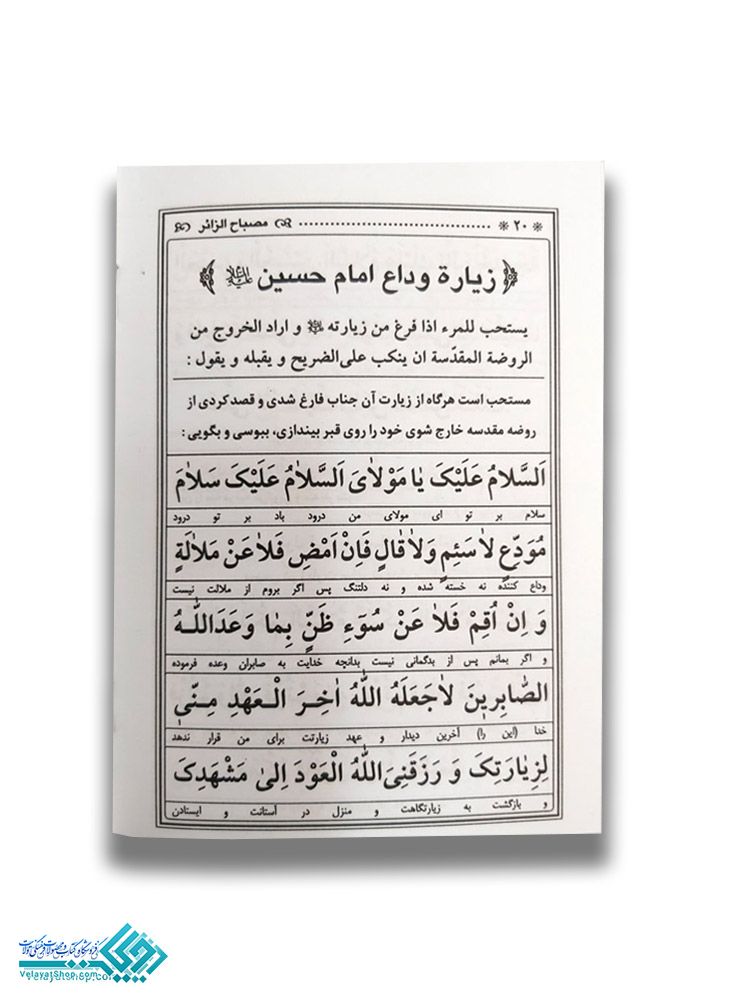 ❊ ۲۰ ❊ ........................................ مصباح الزائر
﴿ زیارة وداع امام حسین علیه‌السلام ﴾
یستحب للمرء اذا فرغ من زیارته و اراد الخروج من
الروضة المقدّسة ان ینکب علی‌الضریح و یقبله و یقول :
مستحب است هرگاه از زیارت آن جناب فارغ شدی و قصد کردی از
روضه مقدسه خارج شوی خود را روی قبر بیندازی، ببوسی و بگویی :
اَلسَّلاٰمُ عَلَیْکَ یٰا مَوْلاٰیَ اَلسَّلاٰمُ عَلَیْکَ سَلاٰمَ
سلام بر تو ای مولای من درود باد بر تو درود
مُوَدِّعٍ لاٰ سَئِمٍ وَلاٰ قٰالٍ فَاِنْ اَمْضِ فَلاٰ عَنْ مَلاٰلَةٍ
وداع کننده نه خسته شده و نه دلتنگ پس اگر بروم از ملالت نیست
وَ اِنْ اُقِمْ فَلاٰ عَنْ سُوۤءِ ظَنٍّ بِمٰا وَعَدَاللّٰهُ
و اگر بمانم پس از بدگمانی نیست بدانچه خدایت به صابران وعده فرموده
الصّٰابِرینَ لاٰجَعَلَهُ اللّٰهُ اٰخِرَ الْعَهْدِ مِنّی
خدا (این را) آخرین دیدار و عهد زیارتت برای من قرار ندهد
لِزِیٰارَتِکَ وَ رَزَقَنِیَ‌اللّٰهُ الْعَوْدَ اِلیٰ مَشْهَدِکَ
و بازگشت به زیارتگاهت و منزل در آستانت و ایستادن
فروشگاه کتاب و محصولات فرهنگی ولایت
VelayatShop.com